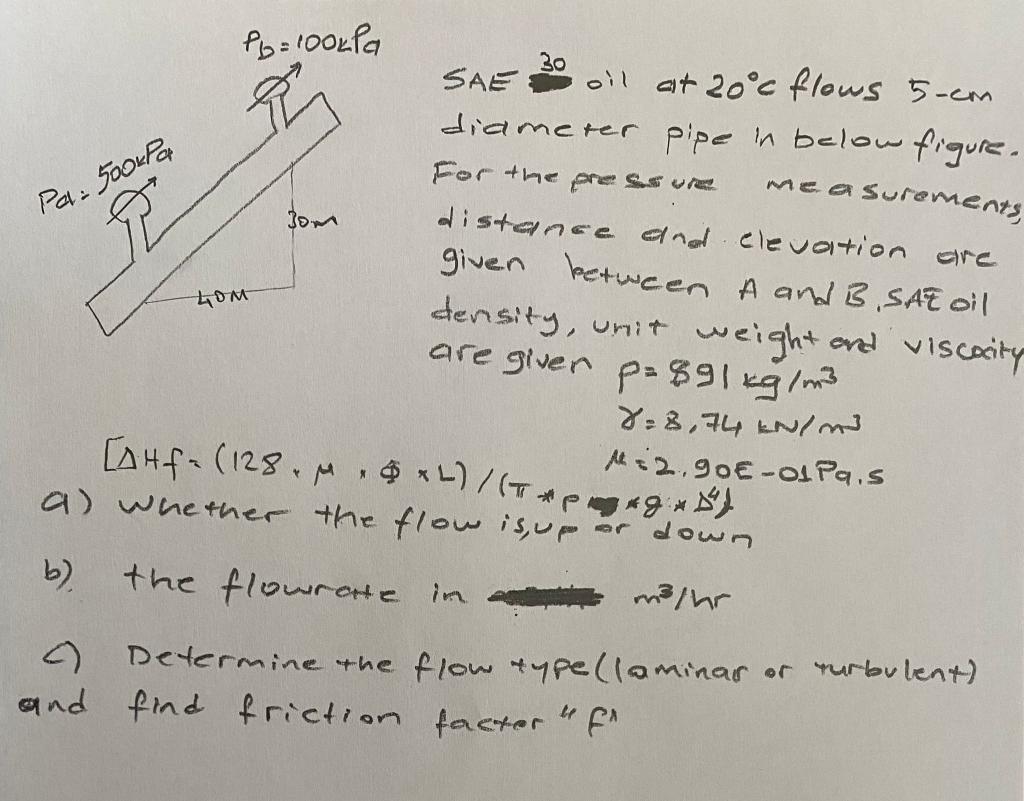 Pb=100kPa
Pa= 500kPa
30m
40M
SAE 30 oil at 20°c flows 5-cm
diameter pipe in below figure.
For the pressure measurements,
distance and elevation are
given between A and B. SAE oil
density, unit weight and viscocity
are given ρ= 891 kg/m³
γ=8,74 kN/m³
μ=2.90E-01Pa.s
[ΔHf=(128 * μ * Φ * L)/(π * ρ * g * D⁴)]
a) whether the flow is, up or down
b) the flowrate in m³/hr
c) Determine the flow type (laminar or turbulent)
and find friction factor "f"